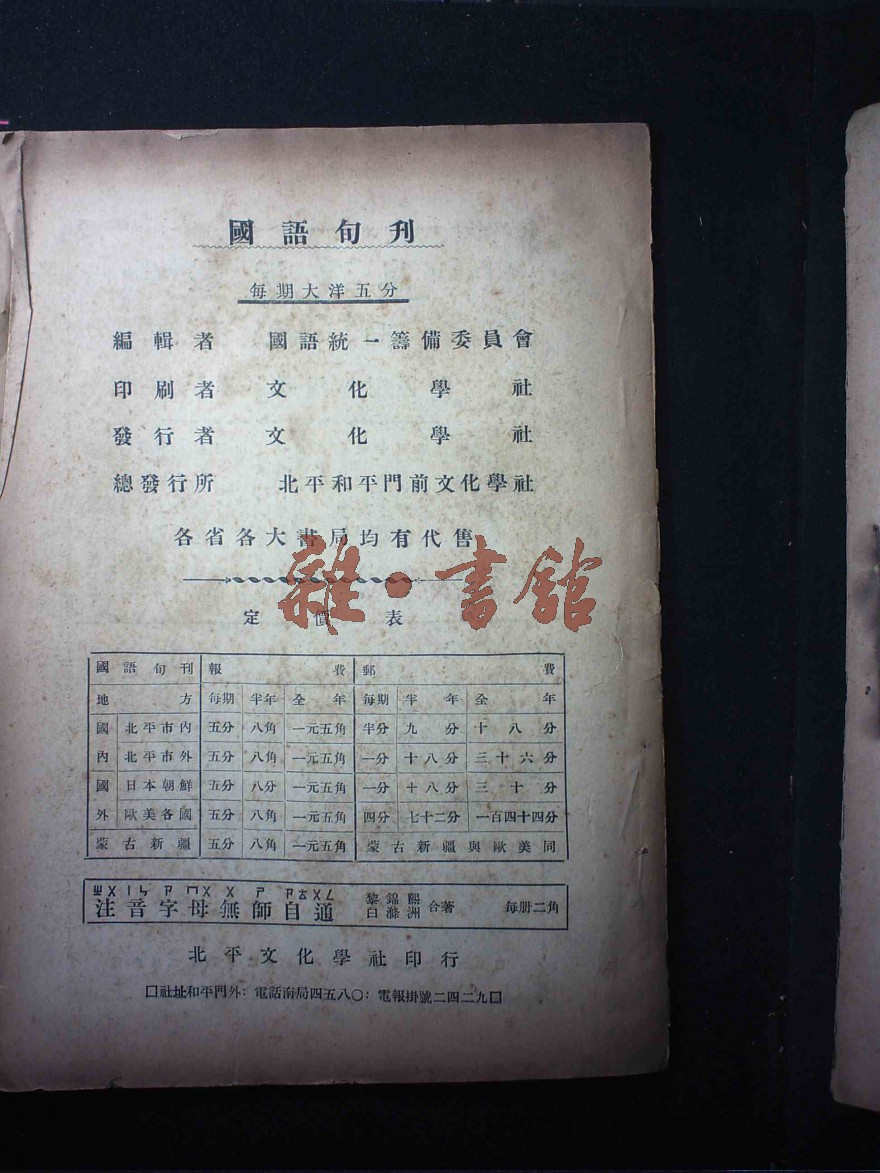 國語旬刊
每期大洋五分
編輯者 國語統一籌備委員會
印刷者 文化學社
發行者 文化學社
總發行所 北平和平門前文化學社
各省各大書局均有代售
雜·書館
定價表
國語旬刊 報費 郵費
地方 每期 半年 全年 每期 半年 全年
國內 北平市內 五分 八角 一元五角 半分 九分 十八分
北平市外 五分 八角 一元五角 一分 十八分 三十六分
國外 日本朝鮮 五分 八分 一元五角 一分 十八分 三十分
歐美各國 五分 八角 一元五角 四分 七十二分 一百四十四分
蒙古新疆 五分 八角 一元五角 蒙古新疆與歐美同
注音字母無師自通 黎錦熙 白滌洲 合著 每冊二角
北平文化學社印行
口社址和平門外：電話南局四五八〇：電報掛號二四二九口